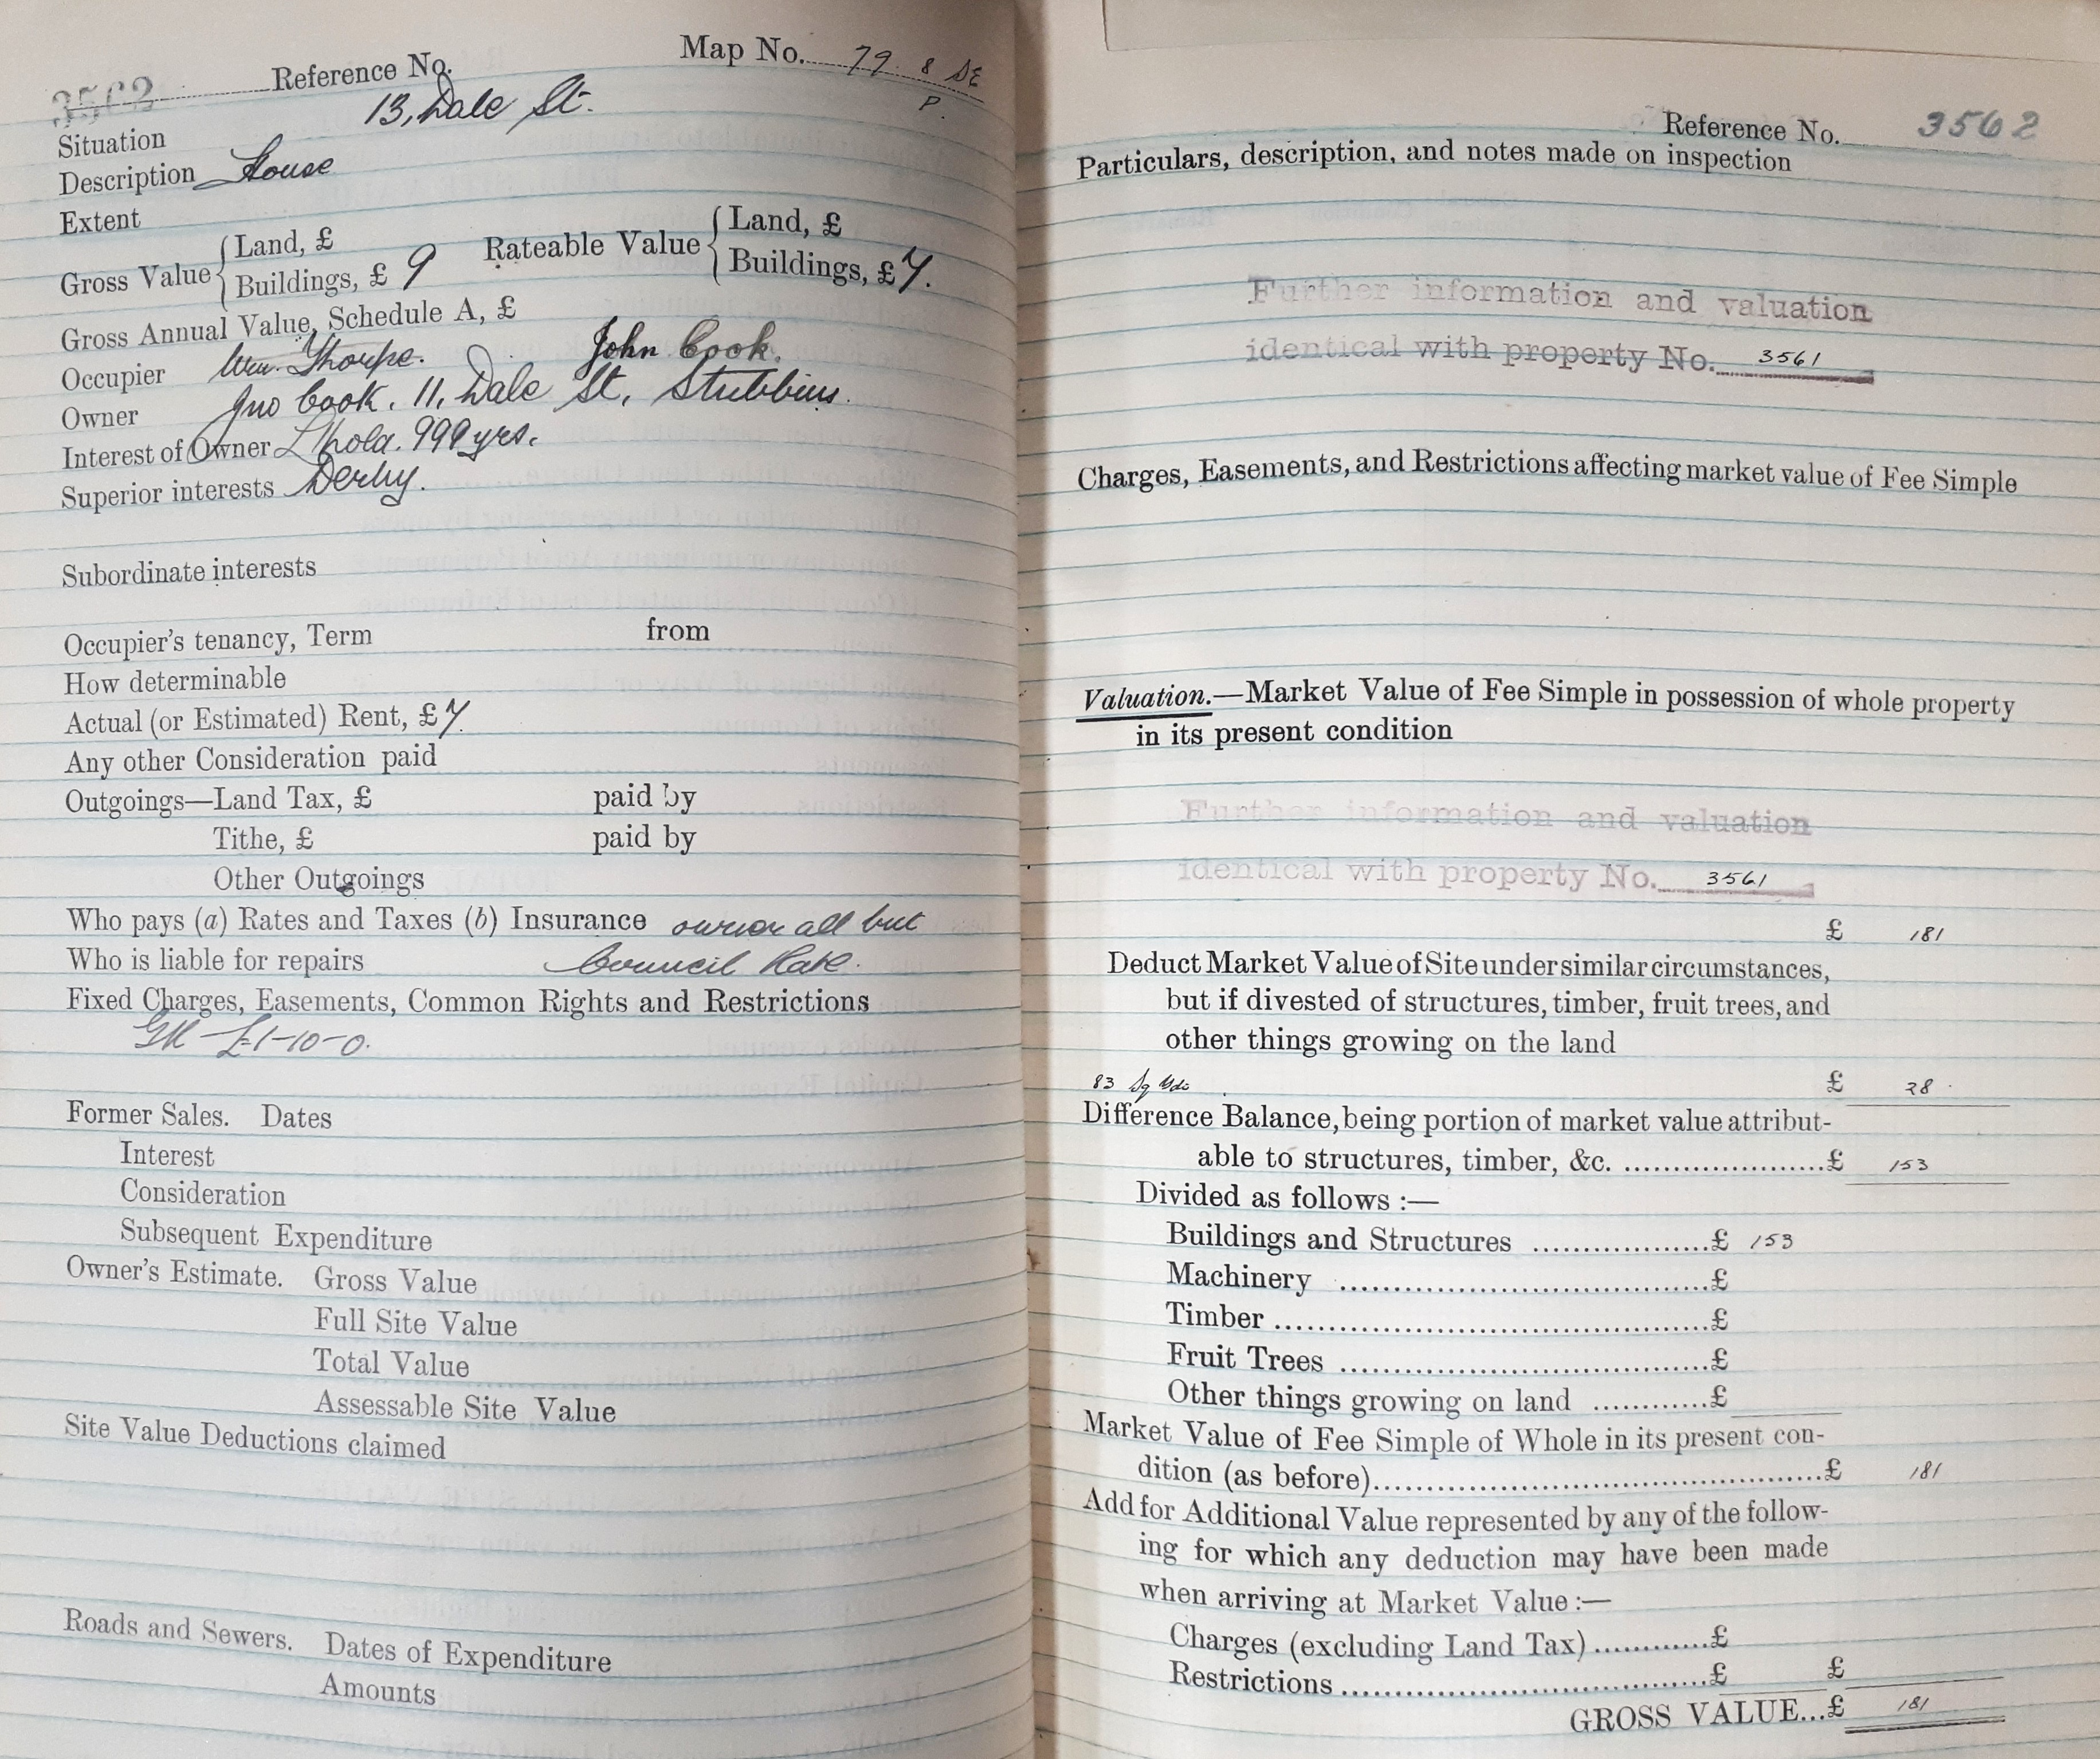 3562 Reference No. Map No. 79. 8 SE
P.
Situation 13, Dale St.
Description House
Extent
Gross Value { Land, £ Rateable Value { Land, £
Buildings, £ 9 Buildings, £ 7.
Gross Annual Value, Schedule A, £
Occupier Wm. Thorpe. John Cook.
Owner Jno Cook. 11, Dale St, Stubbins.
Interest of Owner L'hold. 999 yrs.
Superior interests Derby.
Subordinate interests
Occupier's tenancy, Term from
How determinable
Actual (or Estimated) Rent, £ 7.
Any other Consideration paid
Outgoings—Land Tax, £ paid by
Tithe, £ paid by
Other Outgoings
Who pays (a) Rates and Taxes (b) Insurance owner all but
Who is liable for repairs Council Rate.
Fixed Charges, Easements, Common Rights and Restrictions
GR - £1-10-0.
Former Sales. Dates
Interest
Consideration
Subsequent Expenditure
Owner's Estimate. Gross Value
Full Site Value
Total Value
Assessable Site Value
Site Value Deductions claimed
Roads and Sewers. Dates of Expenditure
Amounts
Reference No. 3562
Particulars, description, and notes made on inspection
Further information and valuation
identical with property No. 3561
Charges, Easements, and Restrictions affecting market value of Fee Simple
Valuation.—Market Value of Fee Simple in possession of whole property
in its present condition
Further information and valuation
identical with property No. 3561
£ 181
Deduct Market Value of Site under similar circumstances,
but if divested of structures, timber, fruit trees, and
other things growing on the land
83 Sq Yds £ 28
Difference Balance, being portion of market value attribut-
able to structures, timber, &c. ....................£ 153
Divided as follows :—
Buildings and Structures ..................£ 153
Machinery ......................................£
Timber .............................................£
Fruit Trees ......................................£
Other things growing on land ............£
Market Value of Fee Simple of Whole in its present con-
dition (as before)..............................................£ 181
Add for Additional Value represented by any of the follow-
ing for which any deduction may have been made
when arriving at Market Value :—
Charges (excluding Land Tax)............£
Restrictions .......................................£ £
GROSS VALUE...£ 181